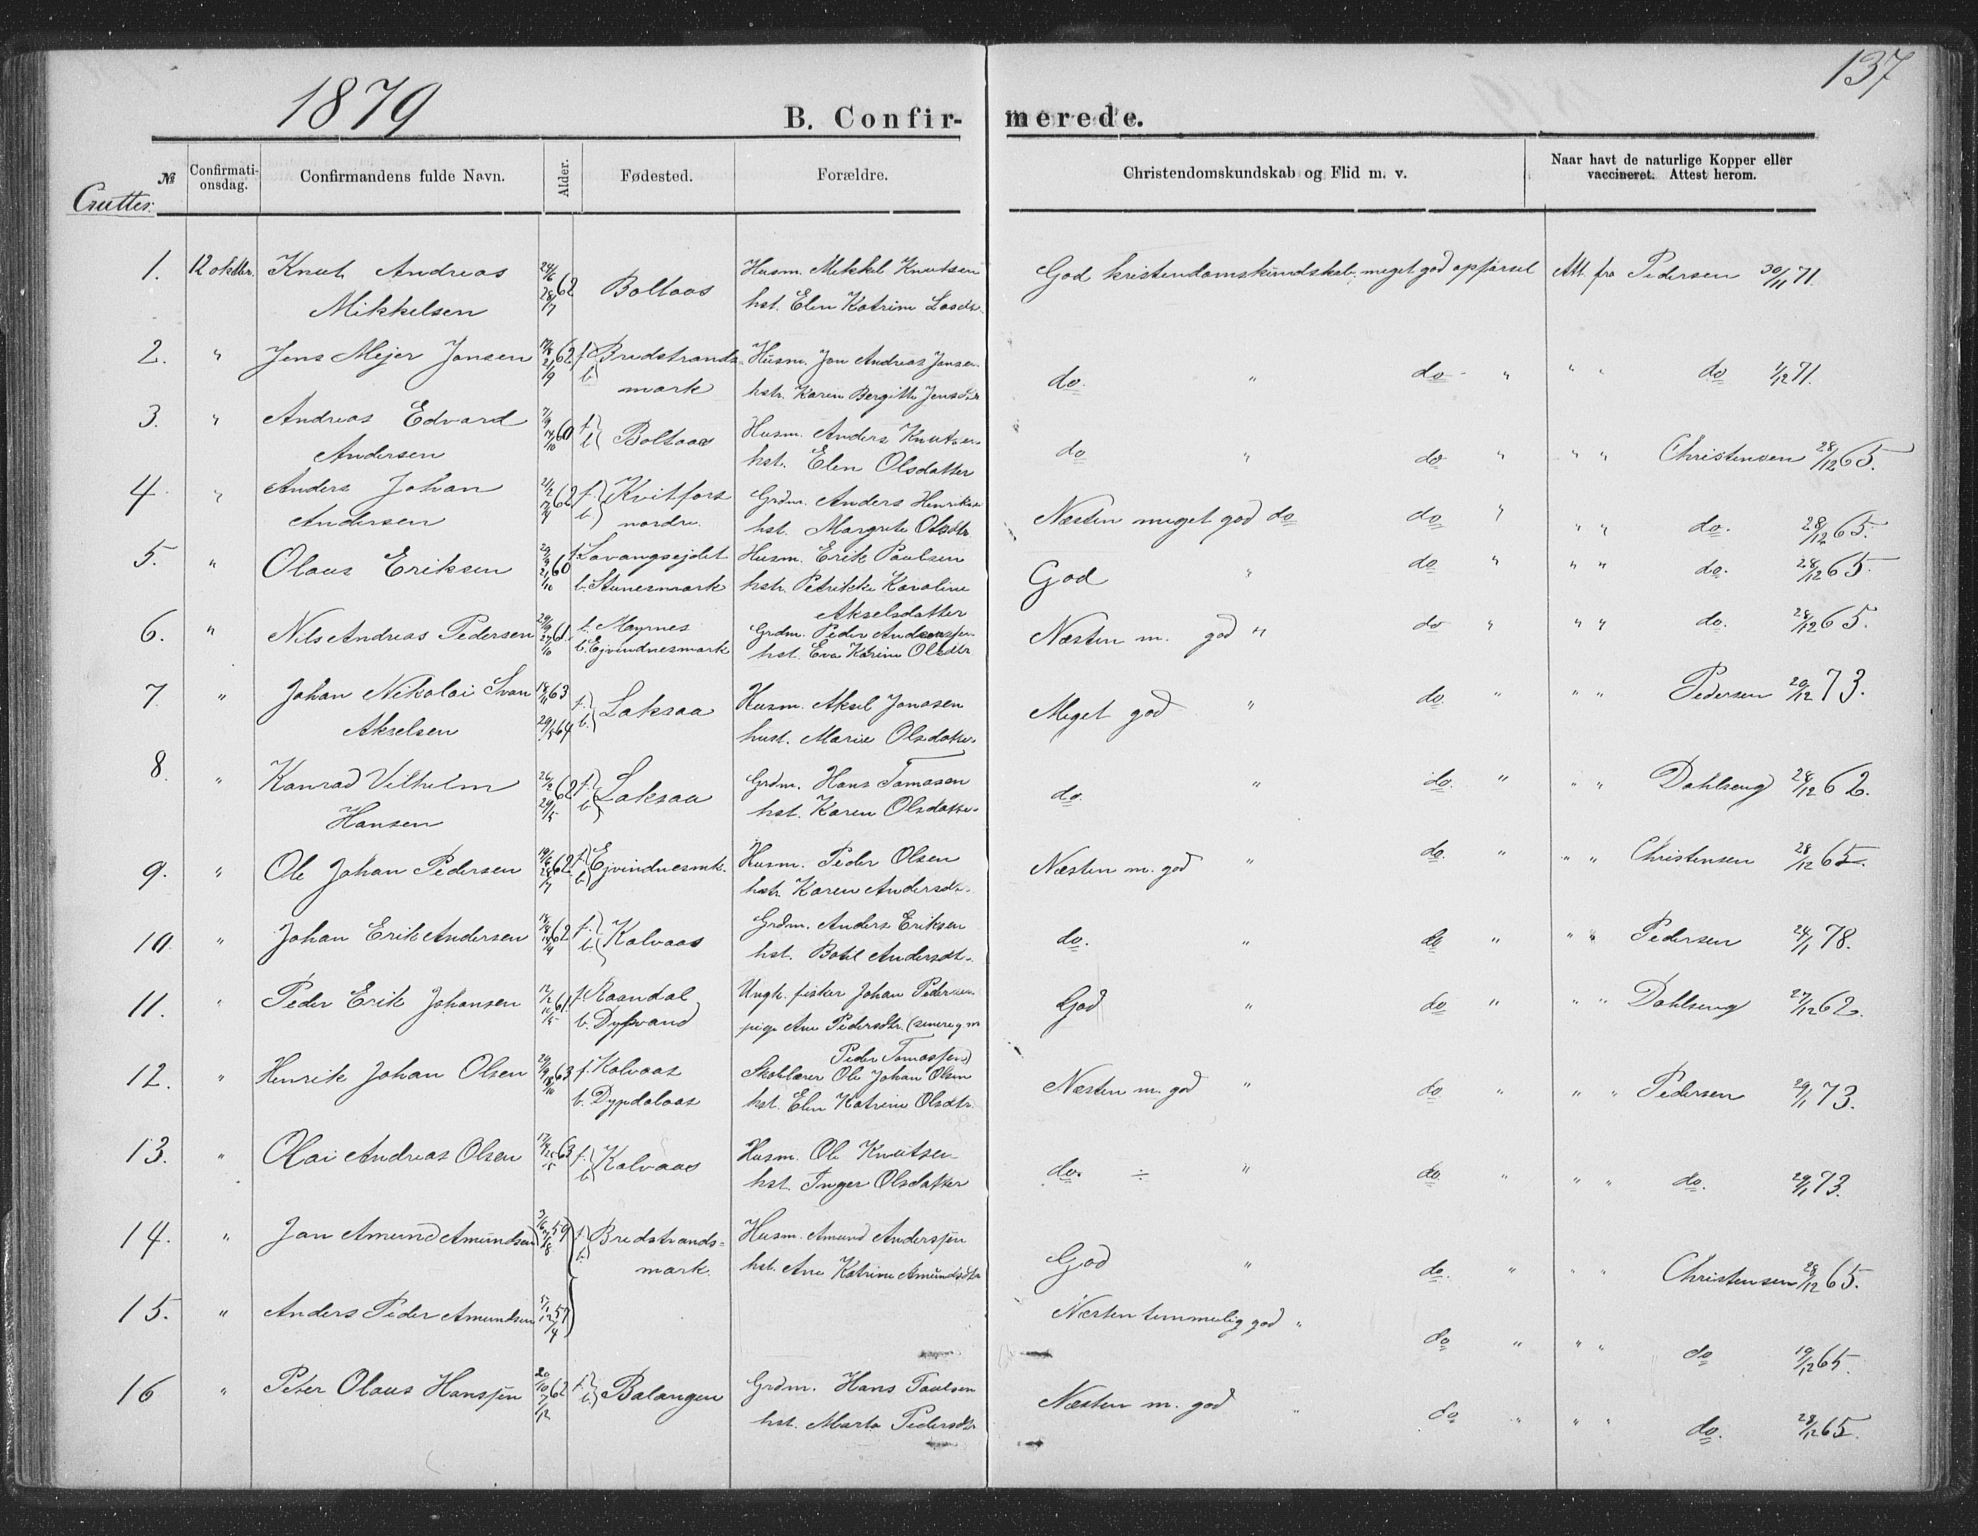 137
1879
B. Confirmerede.
№ Confirmationsdag. Confirmandens fulde Navn. Alder. Fødested. Forældre. Christendomskundskab og Flid m. v. Naar havt de naturlige Kopper eller vaccineret. Attest herom.
1. 12 oktbr. Knut Andreas 24/6 62 Boltaas Husm. Mikkel Knutsen God kristendomskundskab, meget god opførsel Att. fra Pedersen 30/11 71.
Mikkelsen 28/7 hst. Elen Katrine
2. " Jens Mejer Jonsen 62 f. Bredstrands- Husm. Jon Andreas Jonsen do. " do " " " do 1/12 71.
21/9 b. mark hstr. Karen Bergitte
3. " Andreas Edvard 7/9 60 f. Boltaas Husm. Anders Knutsen do " do " " " Christensen 28/12 65.
Andersen 14/10 b. hst. Elen Olsdatter
4 " Anders Johan 62 f. Kvitfors Grdm. Anders Næsten meget god do do " " " do. 28/12 65.
Andersen b. nordre. hst. Margrete Olsdtr
5. " Olaus Eriksen 60 f. Lavangsejdet Husm. Erik Paulsen God " do " " " do. 28/12 65.
21/10 b. Stunesmark hstr. Petrikke Karoline
Akselsdatter
6. " Nils Andreas Pedersen 29/9 61. f. Grdm. Peder Næsten m. god " do " " " do. 28/12 65.
27/10 b. Ejvindnesmark hst. Eva Katrine Olsdtr
7. " Johan Nikolai 18/11 63 f. Laksaa Husm. Aksel Jonasen Meget god " do. " " " Pedersen 20/12 73.
Akselsen 64 b. hust. Marie Olsdatter
8. " Konrad Vilhelm 26/2 62 f. Laksaa Grdm. Hans Tomasen do. " do. " " " Dahlseng 28/12 62.
Hansen 29/5 b. hst. Karen Olsdatter
9. " Ole Johan Pedersen 62. f. Ejvindnesmk. Husm. Peder Olsen Næsten m. god " do. " " " Christensen 28/12 65.
28/7 b. hstr. Karen Andersdtr.
10. " Johan Erik Andersen 62 f. Kalvaas Grdm. Anders Eriksen do. " do " " " Pedersen 24/1 78.
b. hst. Botil Andersdtr.
11. " Peder Erik Johansen 61 f. Raandal Ungk. fisker Johan Pedersen God " do " " " Dahlseng 27/12 62.
b. Dypvand pige Ane Pedersdtr. (senere g. m
Peder Tomassen)
12. " Henrik Johan Olsen 29/9 63 f. Kalvaas Skolelærer Ole Johan Olsen Næsten m. god " do " " " Pedersen 29/1 73.
18/10 b. Dypdalaas hst. Elen Katrine Olsdtr.
13. " Olai Andreas Olsen 17/4 63 f. Kalvaas Husm. Ole Knutsen do. ÷ " do. " " " do. 29/1 73.
25/5 b. hst. Inger Olsdatter
14. " Jon Amund Amundsen 3/6 59 f. Bredstrands- Husm. Amund Anderssen God " do. " " " Christensen 28/12 65.
b. mark. hst. Ane Katrine Amundsdtr
15. " Anders Peder Amundsen 57 Næsten temmelig god " do " " " do 19/12 65.
16 " Peter Olaus Hanssen 20/10 62 f. Balangen Grdm. Hans Paulsen Næsten m. god " do " " " do. 28/12 65.
7/12 b. hst. Marta Pedersdtr